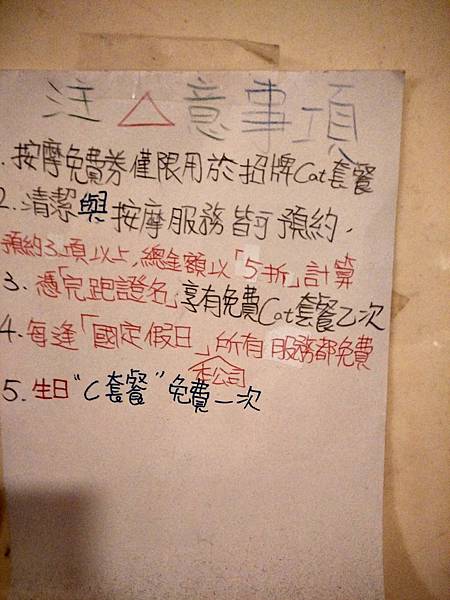 注△意事項
1.按摩免費券僅限用於招牌Cat套餐
2.清潔與按摩服務皆可預約,
預約3項以上,總金額以「5折」計算
3.憑「完跑證名」享有免費Cat套餐乙次
4.每逢「國定假日」所有服務都免費
走公司
5.生日"C套餐"免費一次